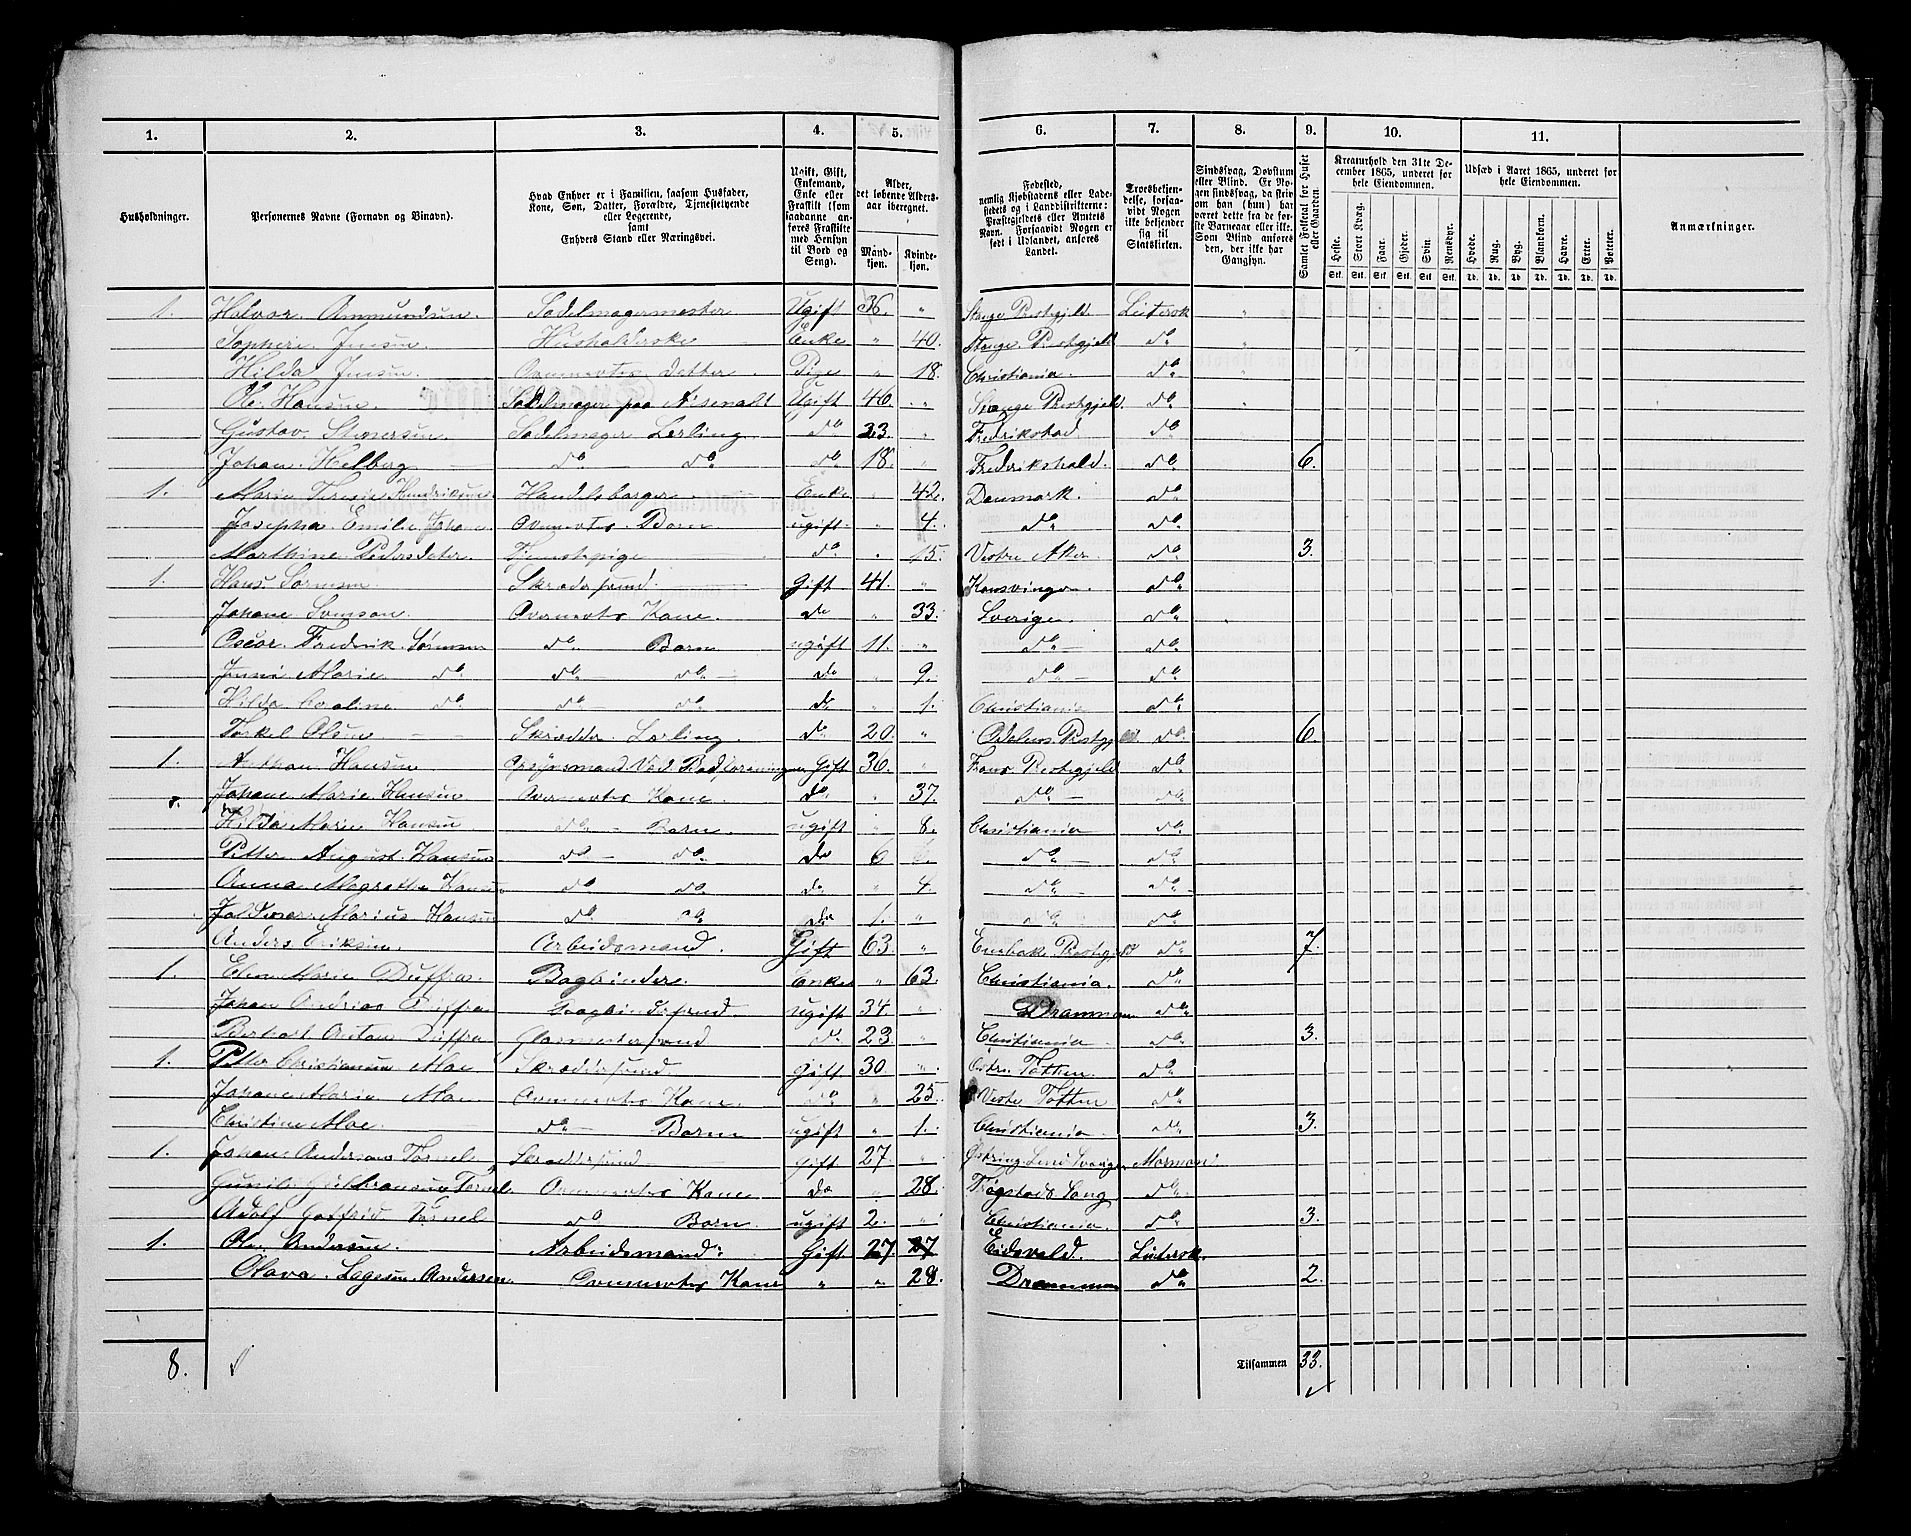 1. 2. 3. 4. 5. 6. 7. 8. 9. 10. 11.
Husholdninger.
Personernes Navne (Fornavn og Binavn).
Hvad Enhver er i Familien, saasom Husfader,
Kone, Søn, Datter, Forældre, Tjenestetyende
eller Logerende,
samt
Enhvers Stand eller Næringsvei.
Ugift, Gift,
Enkemand,
Enke eller
Fraskilt (som
saadanne an-
føres Fraskilte
med Hensyn
til Bord og
Seng).
Alder,
det løbende Alders-
aar iberegnet.
Mand-
kjøn.
Kvinde-
kjøn.
Fødested,
nemlig Kjøbstadens eller Lade-
stedets og i Landdistrikterne:
Præstegjeldets eller Amtets
Navn. Forsaavidt Nogen er
født i Udlandet, anføres
Landet.
Troesbekjen-
delse, forsaa-
vidt Nogen
ikke bekjender
sig til
Statskirken.
Sindssvag, Døvstum
eller Blind. Er No-
gen sindssvag, da skri-
ves om han (hun) har
været dette fra de før-
ste Barneaar eller ikke.
Som Blind anføres
den, der ikke har
Gangsyn.
Samlet Folketal for Huset
eller Gaarden.
Kreaturhold den 31te De-
cember 1865, underet for
hele Eiendommen.
Heste. Stort Kvæg. Faar. Gjeder. Svin. Rensdyr.
Stk. Stk. Stk. Stk. Stk. Stk.
Udsæd i Aaret 1865, underet for
hele Eiendommen.
Hvede. Rug. Byg. Blandkorn. Havre. Erter. Poteter.
Td. Td. Td. Td. Td. Td. Td.
Anmærkninger.
1. Halvor Ammundsen. Sadelmagermester Ugift 36. " Stange Prestegjeld Luthersk "
Sophie Jensen. Husholderske Enke " 40. Stange Prestgjeld do "
Hilda Jensen. datter. Pige " 18. Christiania. do "
Ole Hansen. Sadelmager paa Ugift 46. " Stange Prestgjeld. do "
Gustav Sadelmager Lerling do 23. " Fredrikstad do
Johan Helberg do do do 18. " Frederikshald. do 6.
1. Marie Hendriksen Enke " 42. Danmark. do
Josepha Emilie Johan. Ovennevtes Barn ugift. " 4. do do
Marthine Pedersdater Tjenestepige do " 15. Vestre Aker. do 3.
1. Hans Sørensen Skræder svend. Gift 41. " Konsvinger. do
Johane Svenson. Ovennevtes Kone. do " 33. Sverige. do
Oscar Fredrik Sørensen do Barn ugift 11. " do do
Marie do do do do " 9. do do
Hilda do do do do " 1. Christiania do
Torkel Olsen Skrædder Lerling. do 20. " Prestgjeld. do 6.
1. Hansen Gift 36. " Prestegjeld do
Johane Marie Hansen Ovennevtes Kone. do " 37. do do
Hilda Marie Hansen do Barn. ugift " 8. Christiania do
Petter August Hansen do do do 6 do do
Anna Hansen do do do " 4. do do
Marius Hansen do do do 1. " do do
Anders Eriksen. Arbeidsmand. Gift 63. " Prestegjeld do 7.
1. Marie Duffra. Enke " 63. Christiania. do
Johan Andrias Duffra ugift 34. " Drammen do
Anton Duffra Glasmestersvend do 23. " Christiania do 3.
1. Petter Christiansen Moe Skrædersvend Gift 30. " Østre Totten. do
Johane Marie Moe Ovennevtes Kone. do " 25. Vestre Totten do
Christine Moe. do Barn ugift " 1. Christiania do 3.
1. Johan Anderson Skræddersvend gift 27. " Sverige Mormon
Ovennevtes Kone do " 28. do
Adolf Gotfrid do Barn. ugift 2. " Christiania. do 3.
1. Ole Andersen. Arbeidsmand. Gift 27 27 Eidsvold. Luthersk.
Olava Andersen. Ovennevtes Kone " " 28. Drammen do 2.
8. Tilsammen 33.